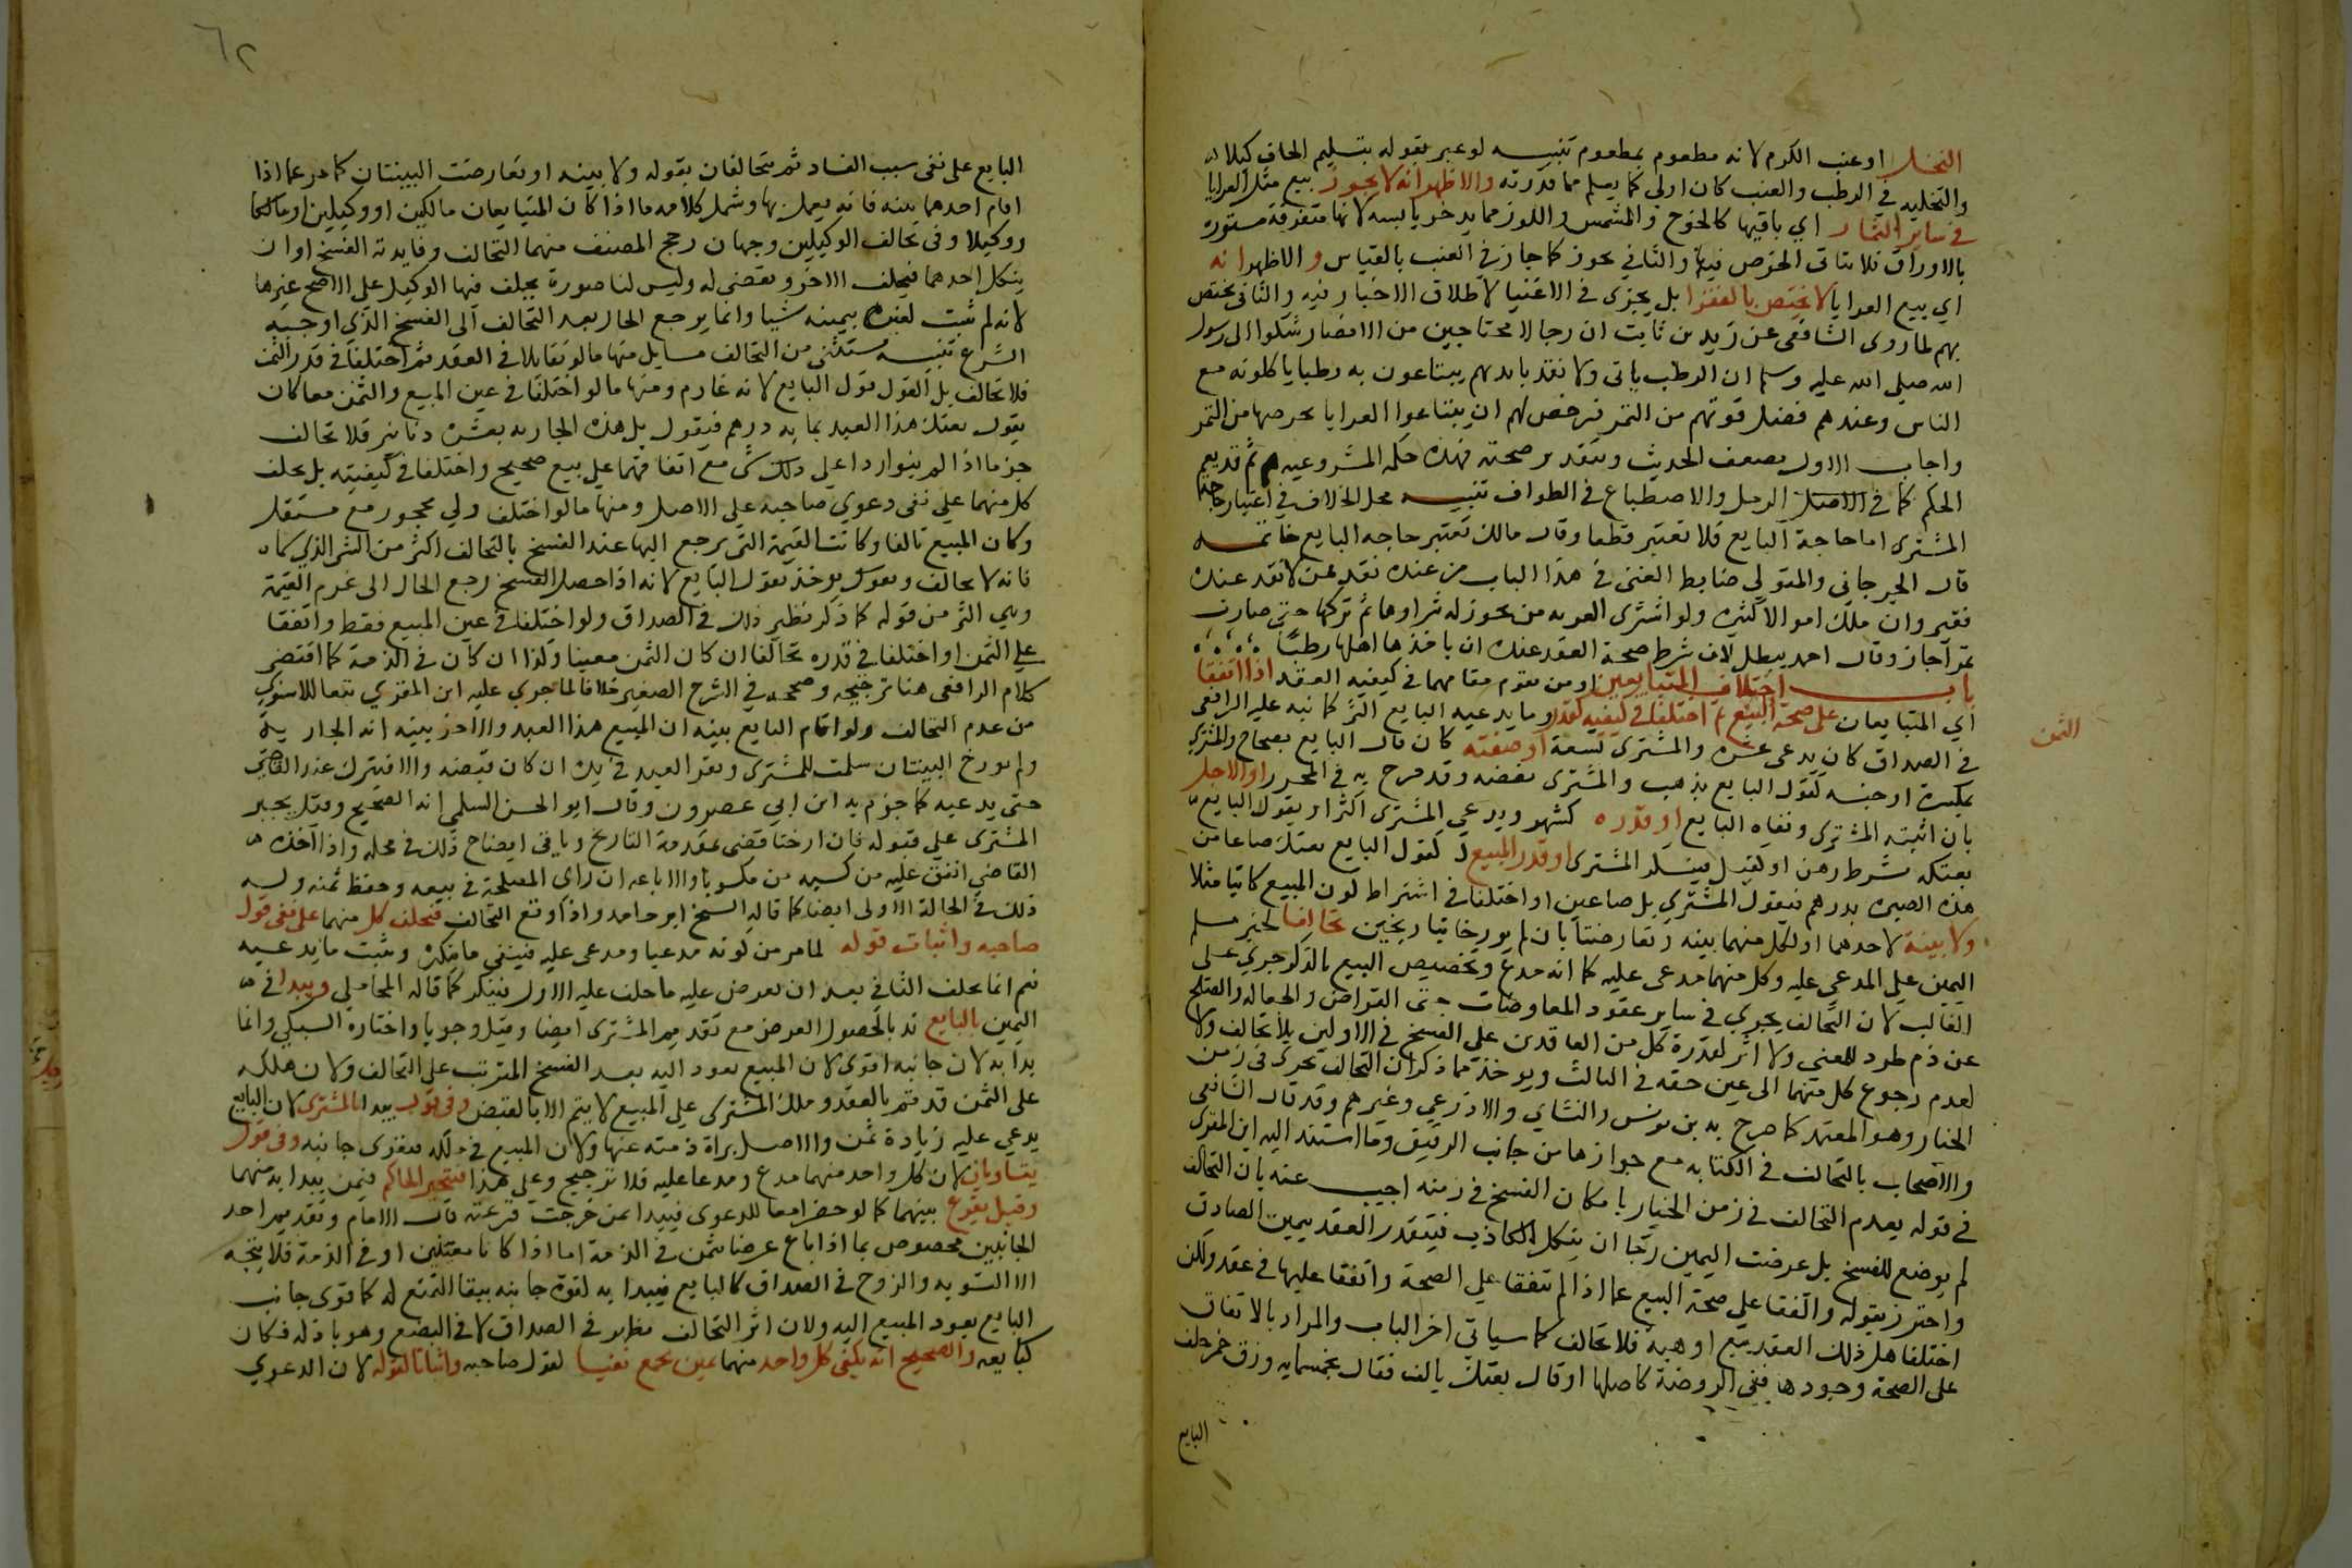 النخل او عنب الكرم لانه مطعوم بمطعوم تنبيه لو عبر بقوله بتسليم الجاف كيلا
والتخليه في الرطب والعنب كان اولي كما يعلم مما قدرته والاظهر انه لا يجوز بيع مثل العرايا
في ساير الثمار اي باقيها كالخوخ والمشمس واللوز مما يدخر يابسه لانها متفرقة مستورة
بالاوراق فلا يتاتى الخرص فيها والثاني يجوز كما جاز في العنب بالقياس و الاظهر انه
اي بيع العرايا لا يختص بالفقرا بل يجزى في الاغنيا لاطلاق الاخبار فيه والثاني يختص
بهم لما روى الشافعى عن زيد بن ثابت ان رجالا محتاجين من الانصار شكوا الى رسول
الله صلي الله عليه وسلم ان الرطب ياتى ولا نقد بايديهم يبتاعون به رطبا ياكلونه مع
الناس وعندهم فضل قوتهم من التمر فرخص لهم ان يبتاعوا العرايا بخرصها من التمر
واجاب الاول بضعف الحديث وبتقدير صحته فهذه حكمه المشروعيه ثم قد يعم
الحكم كما في الرمل والاضطباع في الطواف تنبيه محل الخلاف في اعتبار حاجة
المشترى اما حاجة البايع فلا تعتبر قطعا وقال مالك تعتبر حاجه البايع خاتمه
قال الجرجاني والمتولي ضابط الغنى في هذا الباب من عنده نقد فمن لا نقد عنده
فقير وان ملك اموالا كثيرة ولو اشترى العريه من يجوز له شراوها ثم تركها حتى صارت
تمرا جاز وقال احمد يبطل لان شرط صحة العقد عنده ان ياخذها اهلها رطبا
باب اختلاف المتبايعين او من يقوم مقامهما في كيفيه العقد اذا اتفقا
اي المتبايعان على صحة البيع ثم اختلفا في كيفيه كقدر وما يدعيه البايع اكثر كما نبه عليه الرافعى
الثمن
في الصداق كان يدعى عشره والمشترى تسعة او صفته كان قال البايع بصحاح والمشترى
بمكسرة او جنسه كقول البايع بذهب والمشترى بفضه وقد صرح به في المحرر او الاجل
بان اثبته المشترى ونفاه البايع او قدره كشهر ويدعي المشترى اكثر او يقول البايع
بعتكه بشرط رهن او كفيل فينكر المشترى او قدر المبيع كقول البايع بعتك صاعا من
هذه الصبره بدرهم فيقول المشترى بل صاعين او اختلفا في اشتراط كون المبيع كاتبا مثلا
ولا بينة لاحدهما او لكل منهما بينه وتعارضتا بان لم يورخا بتاريخين تحالفا لخبر مسلم
اليمين علي المدعي عليه وكل منهما مدعى عليه كما انه مدع وتخصيص البيع بالذكر جري على
الغالب لان التحالف يجري في ساير عقود المعاوضات حتى القراض والجعاله والصلح
عن دم طرد للمعنى ولا اثر لقدرة كل من العاقدين على الفسخ في الاولين بلا تحالف ولا
لعدم رجوع كل منهما الى عين حقه في الثالث ويوخذ مما ذكر ان التحالف يجرى في زمن
الخيار وهو المعتمد كما صرح به بن يونس والنشاي والاذرعي وغيرهم وقد قال الشافعى
والاصحاب بالتحالف في الكتابه مع جوازها من جانب الرقيق وما استند اليه ابن المقرى
في قوله بعدم التحالف في زمن الخيار بامكان الفسخ في زمنه اجيب عنه بان التحالف
لم يوضع للفسخ بل عرضت اليمين رجا ان ينكل الكاذب فيتقرر العقد بيمين الصادق
واحترز بقوله واتفقا على صحة البيع عما اذا لم يتفقا علي الصحة واتفقا عليها في عقد ولكن
اختلفا هل ذلك العقد بيع او هبة فلا تحالف كما سياتى اخر الباب والمراد بالاتفاق
على الصحة وجودها ففي الروضة كاصلها او قال بعتك بالف فقال بخمسمايه وزق خمر حلف
البايع
٦٢
البايع على نفى سبب الفساد ثم يتحالفان بقوله ولا بينه او تعارضت البينتان كما مر عما اذا
اقام احدهما بينه فانه يعمل بها وشمل كلامه ما اذا كان المتبايعان مالكين او وكيلين او مالكا
ووكيلا وفى تحالف الوكيلين وجهان رجح المصنف منهما التحالف وفايدته الفسخ او ان
ينكل احدهما فيحلف الاخر ويقضى له وليس لنا صورة يحلف فيها الوكيل على الاصح غيرها
لانه لم يثبت لغيره بيمينه شيا وانما يرجع الحال بعد التحالف الى الفسخ الذي اوجبه
الشرع تنبيه يستثنى من التحالف مسايل منها ما لو تقايلا في العقد ثم اختلفا في قدر الثمن
فلا تحالف بل القول قول البايع لانه غارم ومنها ما لو اختلفا في عين المبيع والثمن معا كان
يقول بعتك هذا العبد بمايه درهم فيقول بل هذه الجاريه بعشره دنانير فلا تحالف
جزما اذا لم يتواردا على شى مع اتفاقهما علي بيع صحيح واختلفا في كيفيته بل يحلف
كل منهما علي نفى دعوي صاحبه علي الاصل ومنها ما لو اختلف ولي محجور مع مستقل
وكان المبيع تالفا وكانت القيمة التى يرجع اليها عند الفسخ بالتحالف اكثر من الشى الذي سماه
فانه لا تحالف ويوخذ بقول البايع لانه اذا حصل الفسخ رجع الحال الى غرم القيمة
وهي اكثر من قوله كما ذكر نظير ذلك في الصداق ولو اختلفا في عين المبيع فقط واتفقا
علي الثمن او اختلفا في قدره تحالفا ان كان الثمن معينا وكذا ان كان في الذمة كما اقتضى
كلام الرافعى هنا ترجيحه وصححه في الشرح الصغير خلافا لما جري عليه ابن المقري تبعا للاسنوي
من عدم التحالف ولو اقام البايع بينه ان المبيع هذا العبد والاخر بينه انه الجاريه
ولم يورخ البينتان سلمت للمشترى ويقر العبد في يده ان كان قبضه والا فيترك عند القاضي
حتى يدعيه كما جزم به ابن ابي عصرون وقال ابو الحسن السلمي انه الصحيح وقيل يجبر
المشترى علي قبوله فان ارختا قضى بمقدمة التاريخ وياتى ايضاح ذلك في محله واذا اخذه
القاضي انفق عليه من كسبه ان كان كسوبا والا باعه ان راى المصلحة في بيعه وحفظ ثمنه وله
ذلك في الحالة الاولى ايضا كما قاله الشيخ ابو حامد واذا وقع التحالف فيحلف كل منهما على نفى قول
صاحبه واثبات قوله لما مر من كونه مدعيا ومدعى عليه فينفى ما ينكره ويثبت ما يدعيه
نعم انما يحلف الثاني بعد ان يعرض عليه ما حلف عليه الاول فينكر كما قاله المحاملي ويبدا في
اليمين بالبايع ندبا لحصول الغرض مع تقديم المشترى ايضا وقيل وجوبا واختاره السبكي وانما
بدا به لان جانبه اقوى لان المبيع يعود اليه بعد الفسخ المترتب على التحالف ولان ملكه
على الثمن قد تم بالعقد وملك المشترى علي المبيع لا يتم الا بالقبض وفى قول يبدا بالمشترى لان البايع
يدعي عليه زيادة ثمن والاصل براة ذمته عنها ولان المبيع في ملكه فيقوى جانبه وفى قول
يتساويان لان كل واحد منهما مدع ومدعا عليه فلا ترجيح وعلى هذا فيتخير الحاكم فيمن يبدا به منهما
وقيل يقرع بينهما كما لو حضرا معا للدعوى فيبدا بمن خرجت قرعته قال الامام وتقديم احد
الجانبين مخصوص بما اذا باع عرضا بثمن في الذمة اما اذا كانا معينين او في الذمة فلا يتجه
الا التسويه والزوج في الصداق كالبايع فيبدا به لقوة جانبه ببقا التمتع له كما قوى جانب
البايع بعود المبيع اليه ولان اثر التحالف يظهر في الصداق لا في البضع وهو باذله فكان
كبايعه والصحيح انه يكفى كل واحد منهما يمين تجمع نفيا لقول صاحبه واثباتا لقوله لان الدعوي